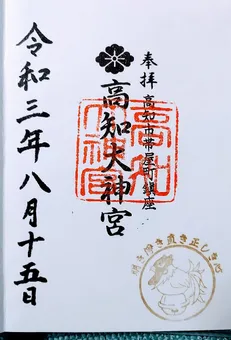 奉拝
高知市帯屋町鎮座
高知大神宮
高知大神宮
令和三年八月十五日